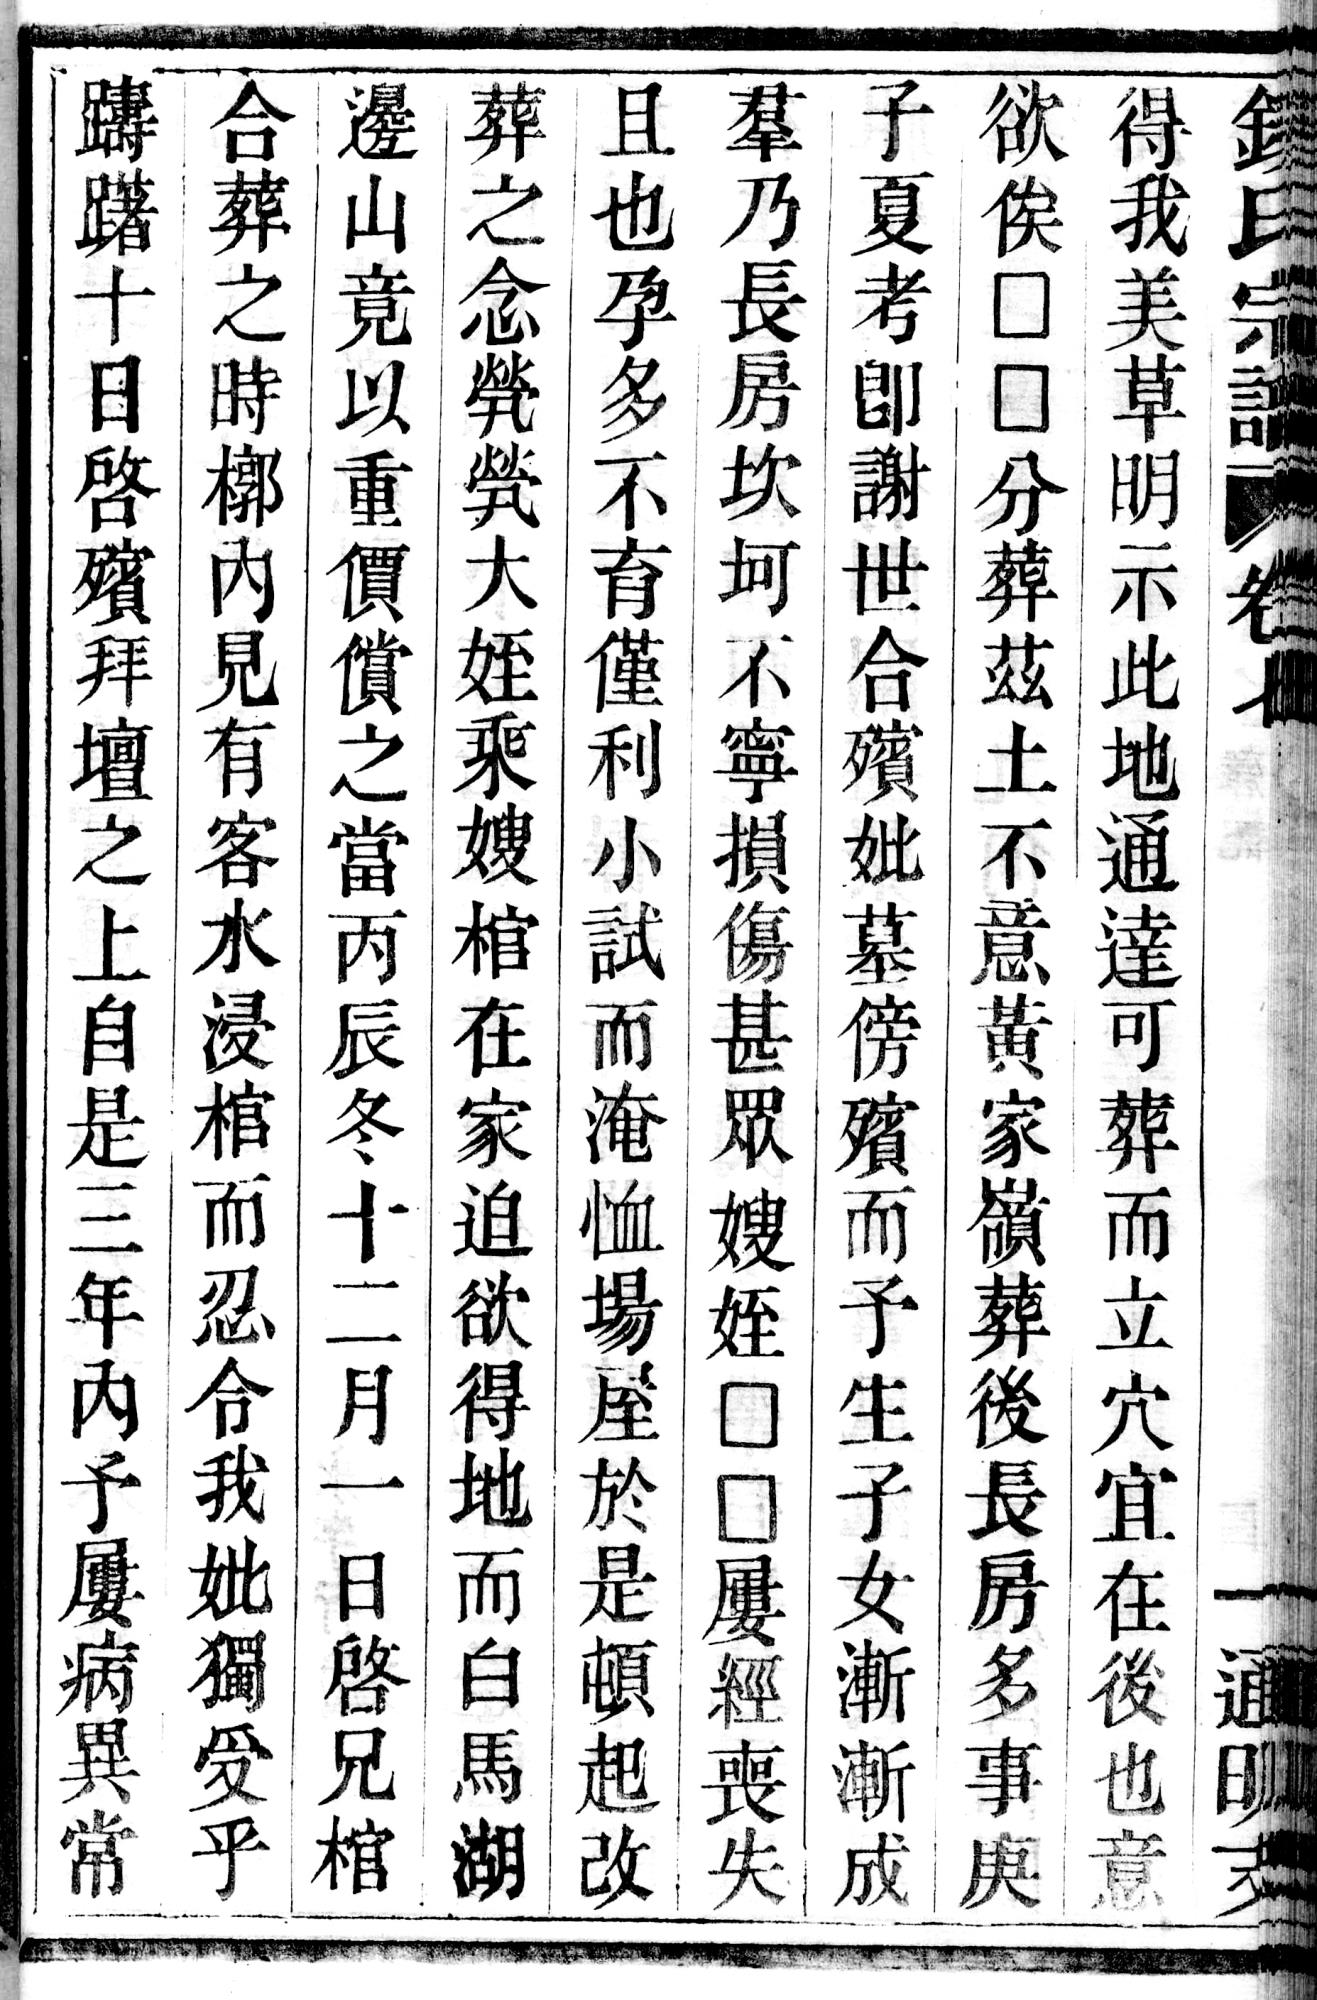 氏宗譜 卷 一 通明
得我美草明示此地通達可葬而立穴宜在後也意
欲俟□□分葬茲土不意黃家嶺葬後長房多事庚
子夏考卽謝世合殯妣墓傍殯而予生子女漸漸成
羣乃長房坎坷不寧損傷甚眾嫂姪□□屢經喪失
且也孕多不育僅利小試而淹恤場屋於是頓起改
葬之念煢煢大姪乘嫂棺在家迫欲得地而白馬湖
邊山竟以重價償之當丙辰冬十二月一日啓兄棺
合葬之時槨內見有客水浸棺而忍令我妣獨受乎
躊躇十日啓殯拜壇之上自是三年內予屢病異常